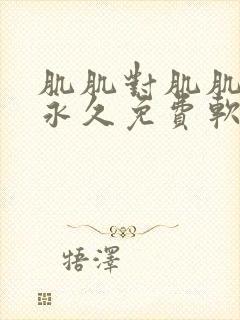 肌肌對肌肌
永久免費軟
牾澤